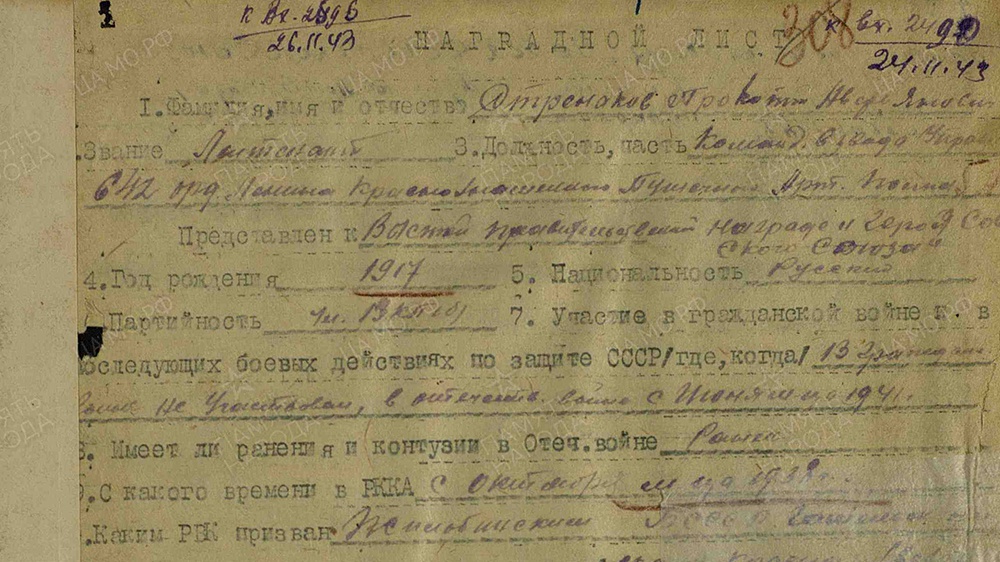 1
к Вх. 2495
26.11.43
308
к вх. 2492
24.11.43
НАГРАДНОЙ ЛИСТ
1. Фамилия, имя и отчество
.Звание Лейтенант 3. Должность, часть Команд. взвода
642 орд. Ленина Краснознаменного Пушечного Арт. Полка
Представлен к Высшей правительственной награде и Герой
ского Союза"
4. Год рождения 1917 5. Национальность Русский
Партийность чл. ВКП(б) 7. Участие в гражданской войне и в
последующих боевых действиях по защите СССР/где, когда/ В Граждан
войне не участвовал, в отечеств. войне с Июня м-ца 1941г.
8. Имеет ли ранения и контузии в Отеч. войне Ранен
9. С какого времени в РККА с октября м-ца 1938г.
.Каким РВК призван Жлобинским БССР Гомельск